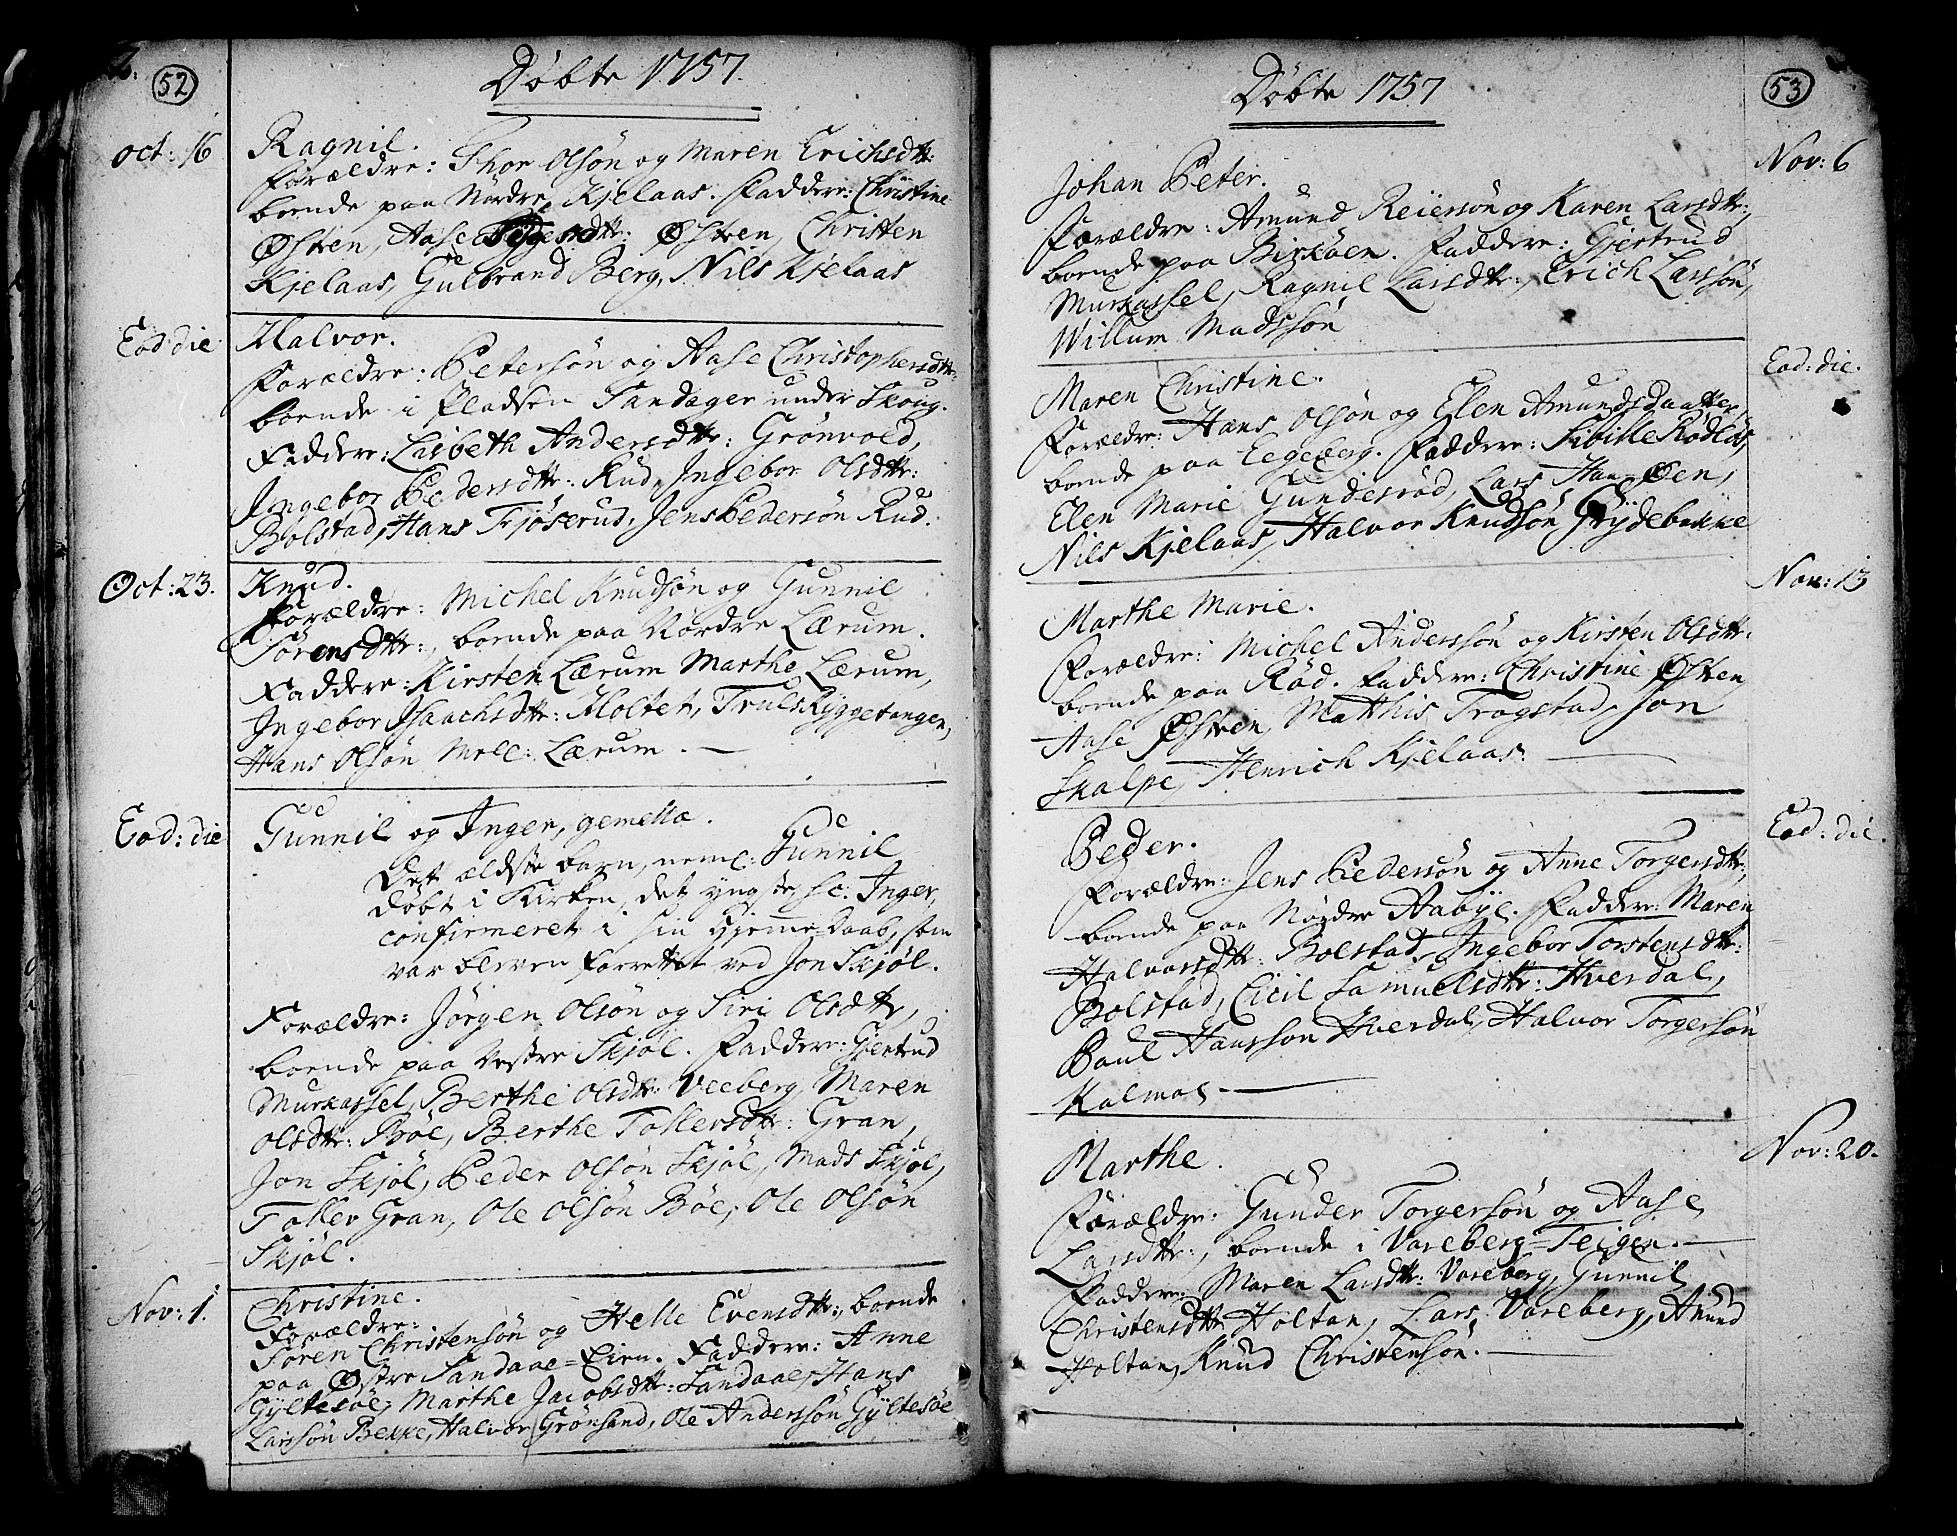 52
Döbte 1757.
Oct: 16
Ragnil.
Forældre: Thor Olsön og Maren Erichsdtt:
boende paa Nordre Kjelaas. Faddere: Christine
Østen, Aase Østen, Christen
Kjelaas, Gulbrand Berg, Nils Kjelaas
Eod: die
Halvor.
Forældre: Petersön og Aase Christophersdtt:
boende i Pladsen Sandager under Skoug.
Faddere: Lisbeth Andersdtt: Grönvold,
Ingebor Pedersdtt: Rud, Ingebor Olsdtt:
Bolstad, Hans Fjöserud, Jens Pedersön Rud.
Oct: 23.
Knud.
Forældre: Michel Knudsön og Gunnil
Sörensdtt:, boende paa Nordre Lærum.
Faddere: Kirsten Lærum Marthe Lærum,
Ingebor Isaachsdtt: Holtet, Truls Ryggetangen,
Hans Olsön Mell: Lærum.
Eod: die
Gunnil og Inger, gemellæ.
Det ældste barn, neml: Gunnil
döbt i Kirken, det yngste, sc: Inger,
confirmeret i sin Hjemme-Daab, som
var bleven forrettet ved Jon Skjöl.
Forældre: Jörgen Olsön og Siri Olsdtt,
boende paa Vestre Skjöl. Faddere: Gjertrud
Murkassel, Berthe Olsdtt: Veeberg, Maren
Olsdtt: Böe, Berthe Tollersdtt: Gran,
Jon Skjöl, Peder Olsön Skjöl, Mads Skjöl,
Toller Gran, Ole Olsön Böe, Ole Olsön
Skjöl.
Nov: 1.
Christine.
Forældre:
Sören Christensön og Helle Evensdtt:, boende
paa Østre Sandaae=Eien. Faddere: Anne
Gyltesöe, Marthe Jacobsdtt: Sandaae, Hans
Larssön Bekke, Halvor Grönsand, Ole Anderssön Gyltesöe
53
Döbte 1757
Nov: 6
Johan Peter.
Forældre: Amund Reiersön og Karen Larsdtt:,
boende paa Birköen. Faddere: Gjertrud
Murkassel, Ragnil Larsdtt:, Erich Larssön,
Willum Madssön
Eod: die.
Maren Christine.
Forældre: Hans Olsön og Elen Amundsdaatter,
boende paa Eegeberg. Faddere: Sibille Rödlös,
Elen Marie Gundesröd, Lars Haa=Øen,
Nils Kjelaas, Halvor Knudsön Grydebakke
Nov: 13
Marthe Marie.
Forældre: Michel Anderssön og Kirsten Olsdtt:
boende paa Röd. Faddere: Christine Østen,
Aase Østen, Matthis Trogstad, Jon
Skalpe, Henrich Kjelaas.
Eod: die.
Peder.
Forældre: Jens Pedersön og Anne Torgersdtt:,
boende paa Nordre Aabye. Faddere: Maren
Halvorsdtt: Bolstad, Ingebor Torstensdtt:
Bolstad, Cicil Samuelsdtt: Hverdal,
Paul Hanssön Hverdal, Halvor Torgersön
Kolmos
Nov: 20.
Marthe.
Forældre: Gunder Torgersön og Aase
Larsdtt:, boende i Vareberg=Teigen.
Faddere: Maren Larsdtt: Vareberg, Gunnil
Christensdtt: Holtan, Lars Vareberg, Amund
Holtan, Knud Christensön.